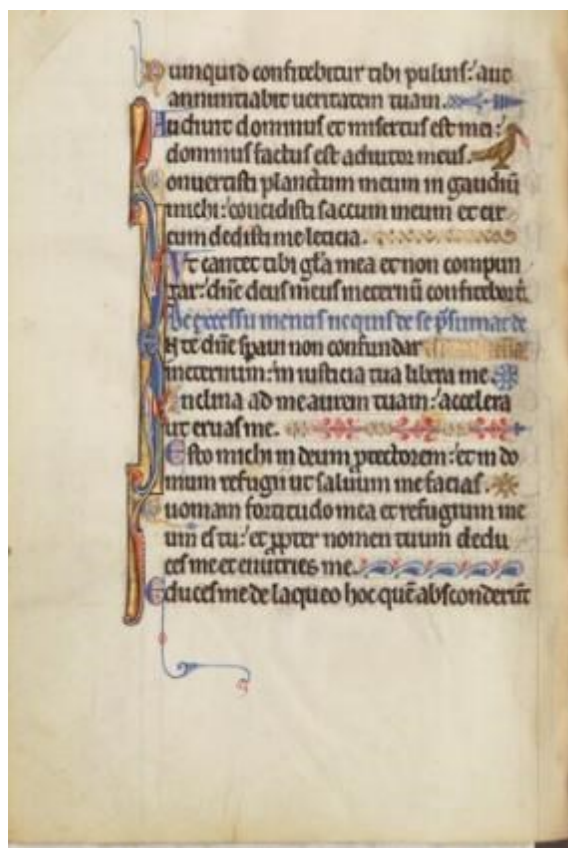 Numquid confitebitur tibi puluis: aut
annuntiabit ueritatem tuam.
Audiuit dominus et misertus est mei:
dominus factus est adiutor meus.
Conuertisti planctum meum in gaudiū
michi: concidisti saccum meum et cir
cum dedisti me leticia.
Vt cantet tibi gl̄a mea et non compun
gar: dn̄e deus meus in eternū confitebor t̄
De excessu mentis ne quis de se p̄sumat de
In te dn̄e speraui non confundar
in eternum: in iusticia tua libera me
Inclina ad me aurem tuam: accelera
ut eruas me.
Esto michi in deum protectorem: et in do
mum refugii ut saluum me facias.
Quoniam fortitudo mea et refugium me
um es tu: et propter nomen tuum dedu
ces me et enutries me.
Educes me de laqueo hoc quē absconderūt